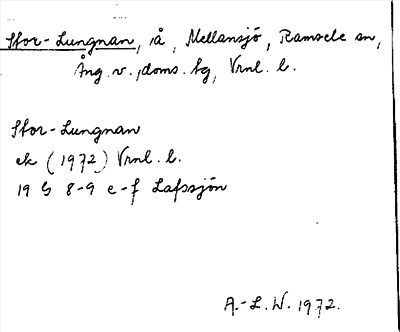 Stor-Lungnan, iå, Mellansjö, Ramsele sn,
Ång. v., doms. tg, Vrnl. l.
Stor-Lungnan
ek (1972) Vrnl. l.
19 G 8-9 e-f Lafssjön
A.-L. W. 1972.